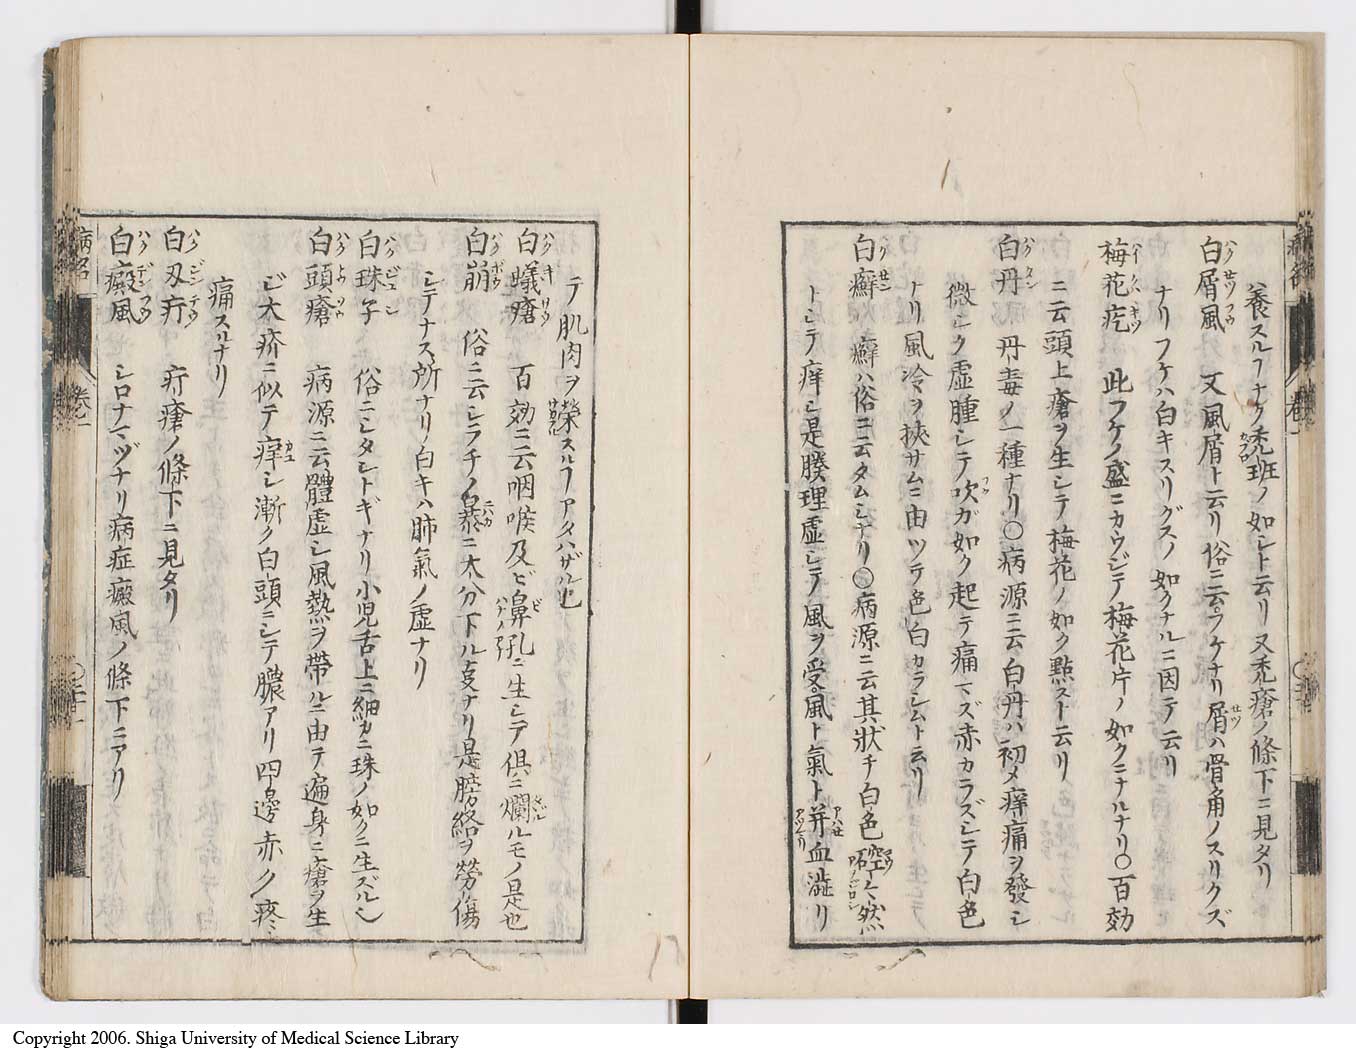 養スルヿナク禿班ノ如シト云リ又禿瘡ノ條下ニ見タリ
白屑風 又風屑ト云リ俗ニ云フケナリ屑ハ骨角ノスリクズ
ナリフケハ白キスリグズノ如クナルニ因テ云リ
梅花疕 此フケノ盛ニカウジテ梅花片ノ如クニナルナリ〇百効
ニ云頭上瘡ヲ生シテ梅花ノ如ク點スト云リ
白丹 丹毒ノ一種ナリ〇病源ニ云白丹ハ初メ痒痛ヲ發シ
微シク虚腫シテ吹ガ如ク起テ痛マズ赤カラズシテ白色
ナリ風冷ヲ挾サムニ由ツテ色白カラシムト云リ
白癬 癬ハ俗ニ云タムシナリ〇病源ニ云其狀チ白色硿々然
トシテ痒シ是腠理虚シテ風ヲ受風ト氣ト并血澁リ
テ肌肉ヲ榮スルヿアタハザル也
白蟻瘡 百効ニ云咽喉及ビ鼻孔ニ生シテ俱ニ爛ルモノ是也
白崩 俗ニ云シラチノ暴ニ大分下ル𠮟ナリ是胞絡ヲ勞傷
シテナス所ナリ白キハ肺氣ノ虚ナリ
白珠子 俗ニシタシトギナリ小児舌上ニ細カニ珠ノ如クニ生ズル
白頭瘡 病源ニ云體虚シ風熱ヲ帶ルニ由テ遍身ニ瘡ヲ生
ビ大疥ニ似テ痒シ漸ク白頭ニシテ膿アリ四邊赤ク疼
痛スルナリ
白刄疔 疔瘡ノ條下ニ見タリ
白癜風 シロナマヅナリ病症癜風ノ條下ニアリ
病名 卷一
Copyright 2006. Shiga University of Medical Science Library